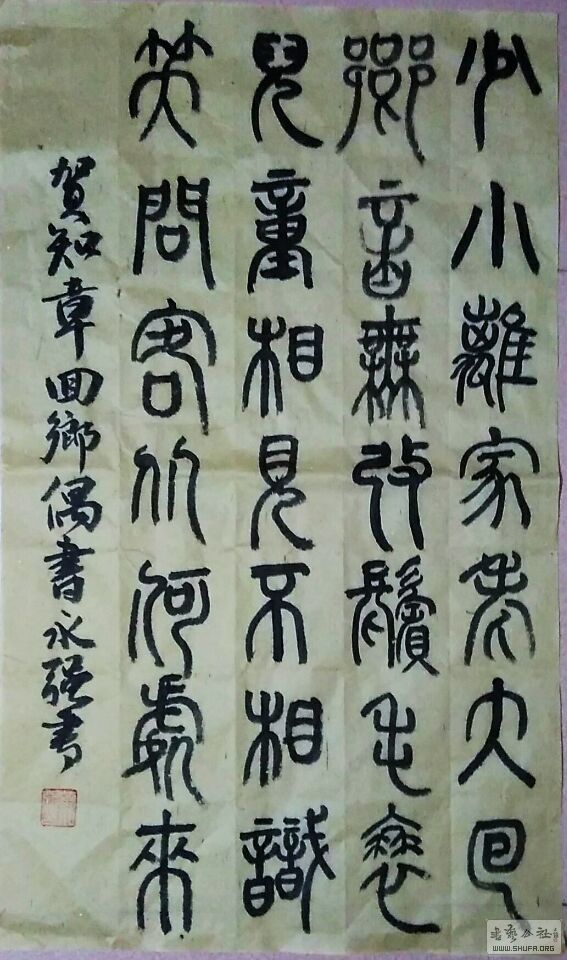 少小離家老大回
鄉音無改鬢毛衰
兒童相見不相識
笑問客从何處來
賀知章回鄉偶書永强書
書藝公社
WWW.SHUFA.ORG